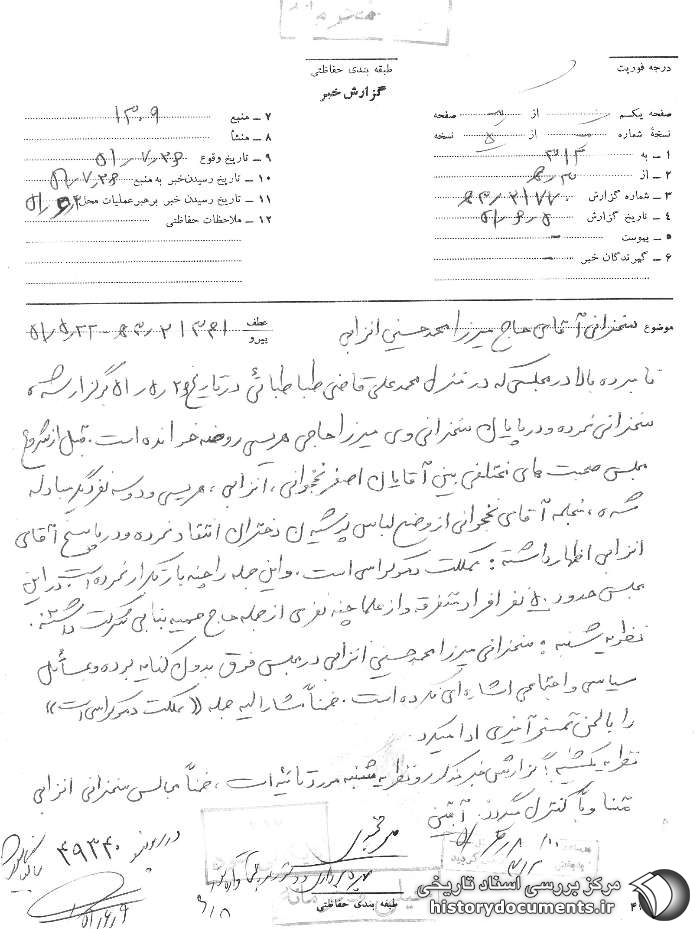 محرمانه
درجه فوریت
طبقه بندی حفاظتی
گزارش خبر
صفحه یکم از صفحه
نسخهٔ شماره از ۵ نسخه
۱ ـ به ۳۱۲
۲ ـ از
۳ ـ شماره گزارش
۴ ـ تاریخ گزارش
۵ ـ پیوست
۶ ـ گیرندگان خبر
۷ ـ منبع ۱۳۰۹
۸ ـ منشأ
۹ ـ تاریخ وقوع
۱۰ ـ تاریخ رسیدن خبر به منبع
۱۱ ـ تاریخ رسیدن خبر برهبر عملیات محل
۱۲ ـ ملاحظات حفاظتی
موضوع سخنرانی آقای حاج میرزا محمد حسینی انزابی
عطف
پیرو
نامبرده بالا در مجلسی که در منزل محمد علی قاضی طباطبائی در تاریخ برگزار شده
سخنرانی نموده و در پایان سخنرانی وی میرزا حاجی هریسی روضه خوانده است. قبل از شروع
مجلس صحبت های مختلفی بین آقایان اصغر نخجوانی، انزابی، هریسی و دو سه نفر دیگر مبادله
شده، منجمله آقای نخجوانی از وضع لباس پوشیدن دختران انتقاد نموده و در پاسخ آقای
انزابی اظهار داشته: مملکت دموکراسی است. و این جمله را چند بار تکرار نموده است. در این
مجلس حدود ۵۰ نفر افراد متفرقه و از علما چند نفری از جمله حاج بنابی شرکت داشتند.
نظریه شنبه: سخنرانی میرزا محمد حسینی انزابی در مجلس فوق بدون کنایه بوده و مسائل
سیاسی و اجتماعی اشاره ای نکرده است. ضمناً مشارالیه جمله «مملکت دموکراسی است»
را با لحن تمسخر آمیزی ادا میکرد.
نظریه یکشنبه: گزارش خبر مذکور و نظریه شنبه مورد تائید است، ضمناً مجالس سخنرانی انزابی
متناوباً کنترل میگردد. آبتین
در پرونده ۴۹۳۴۰
بایگانی شود
طبقه بندی حفاظتی
مرکز بررسی اسناد تاریخی
historydocuments.ir